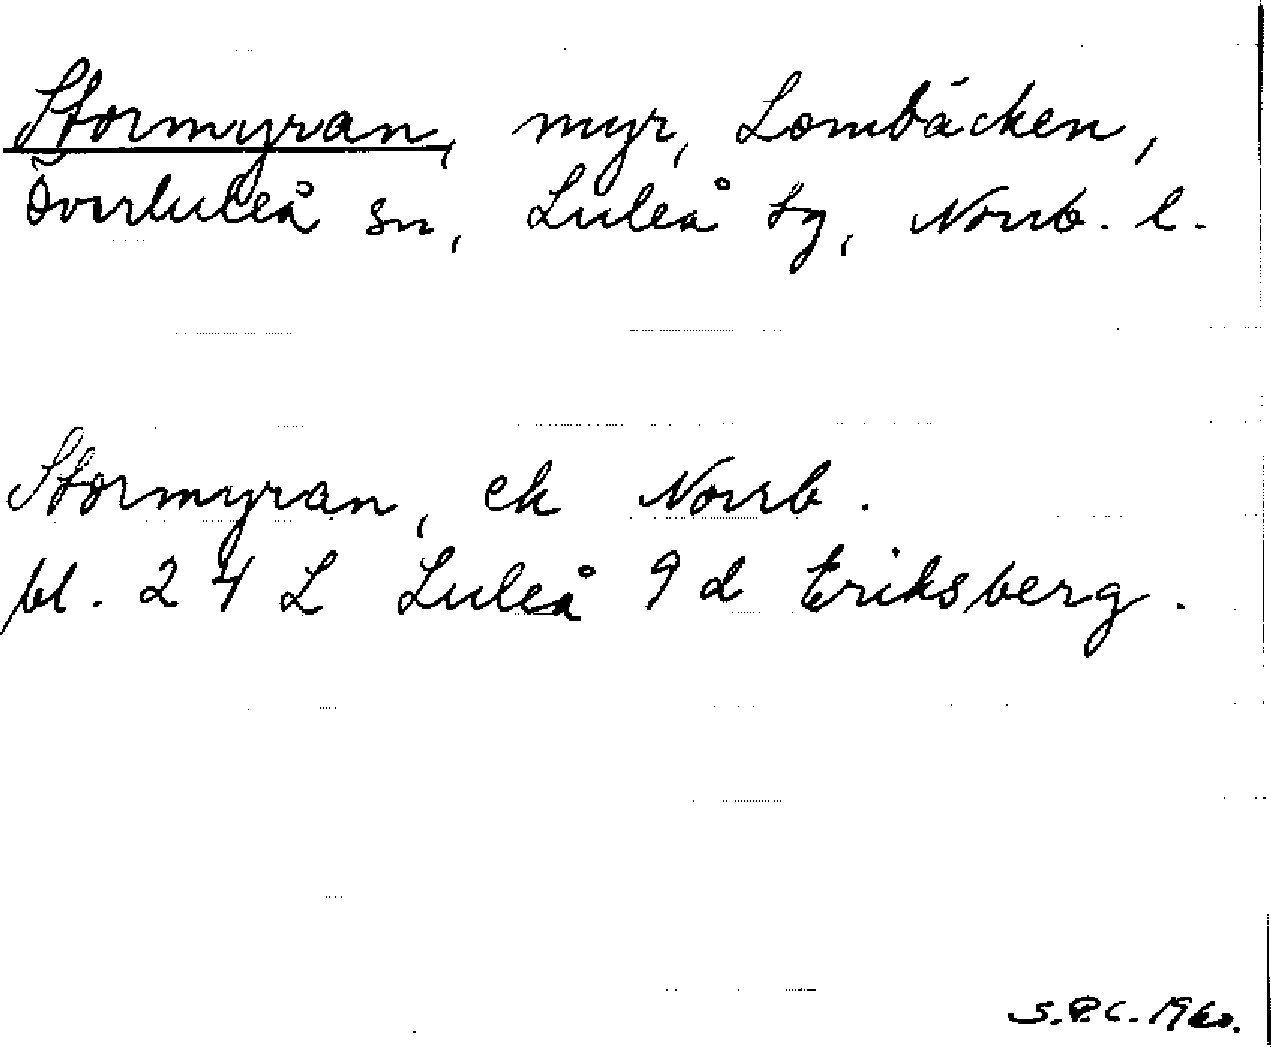 Stormyran, myr, Lombäcken,
Överluleå sn, Luleå tg, Norrb. l.
Stormyran, ek Norrb.
bl. 24 L Luleå 9 d Eriksberg.
S.P.C. 1960.